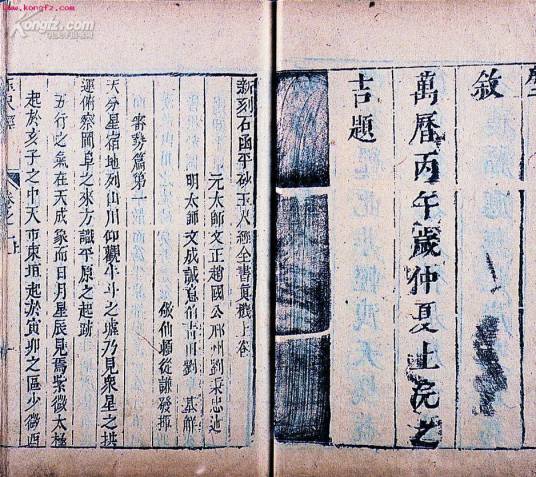 www.kongfz.com
敘
萬曆丙午歲仲夏上浣之
吉題
新刻石函平砂玉尺經全書真機上卷
元太師文正趙國公邢州劉秉忠述
明太師文成誠意伯青田劉基解
後仙賴從謙發揮
審勢篇第一
天分星宿地列山川仰觀牛斗之墟乃見衆星之拱
運俯察岡阜之來方識平原之起跡
五行之氣在天成象而日月星辰見焉紫微太極
起於亥子之中天市東垣起於寅卯之區少微酉
玉尺經
卷之一上